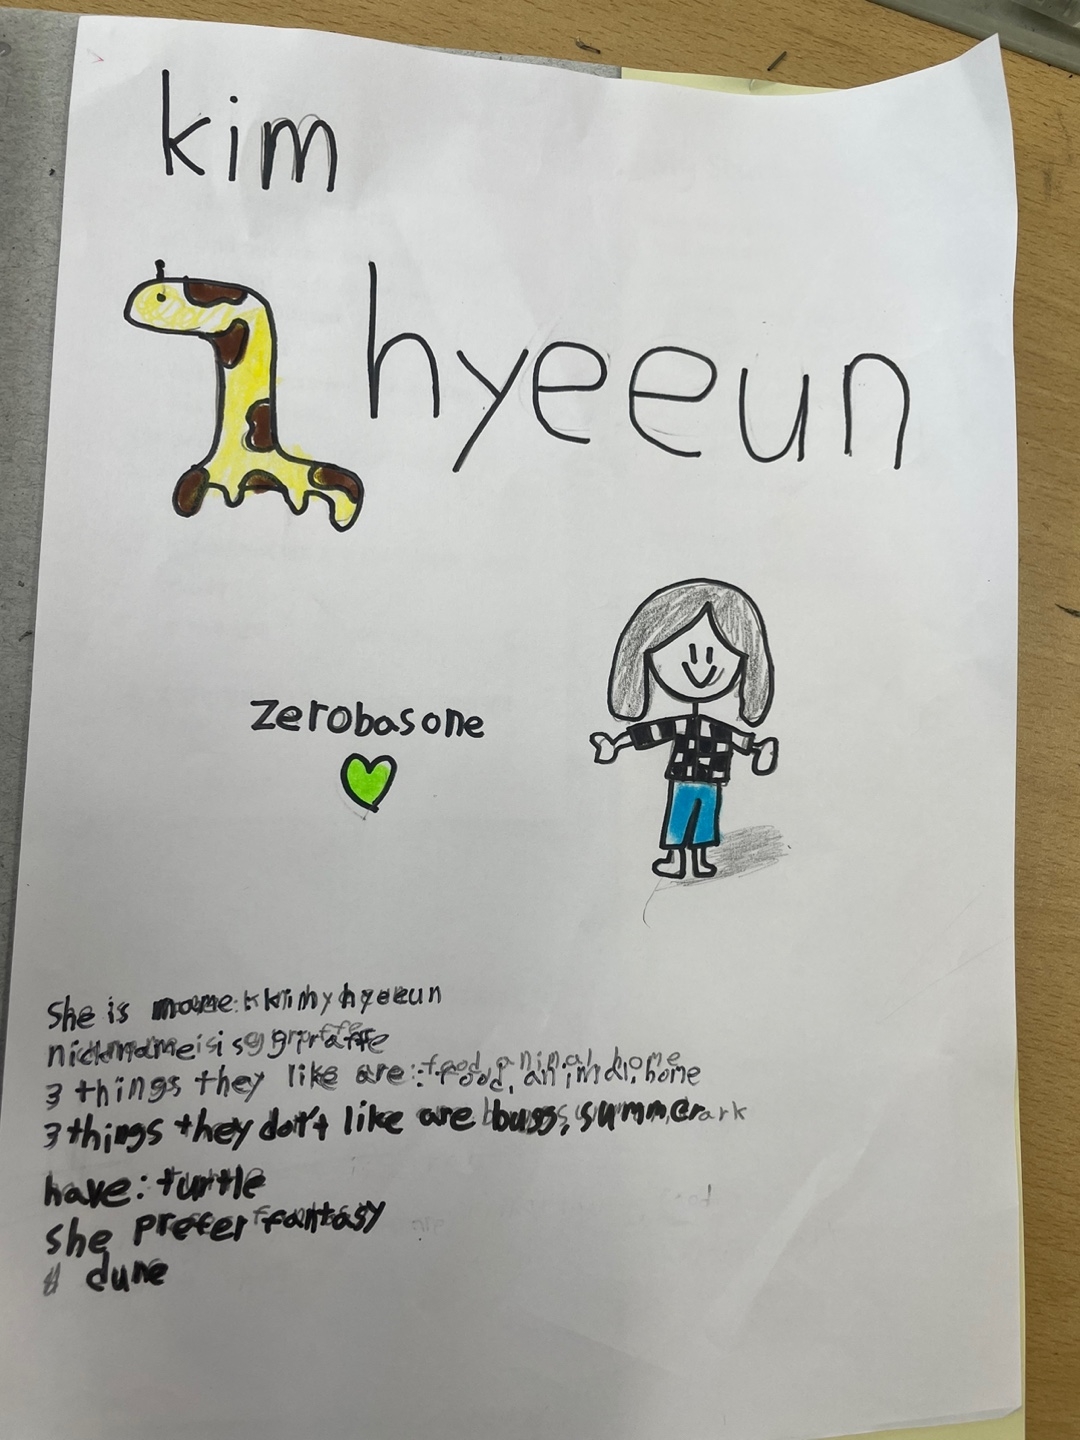 kim
hyeeun
zerobasone
She is name: kim hyeeun
nickname is giraffe
3 things they like are: food, animal, home
3 things they don't like are bugs, summer, dark
have: turtle
she prefer fantasy
dune